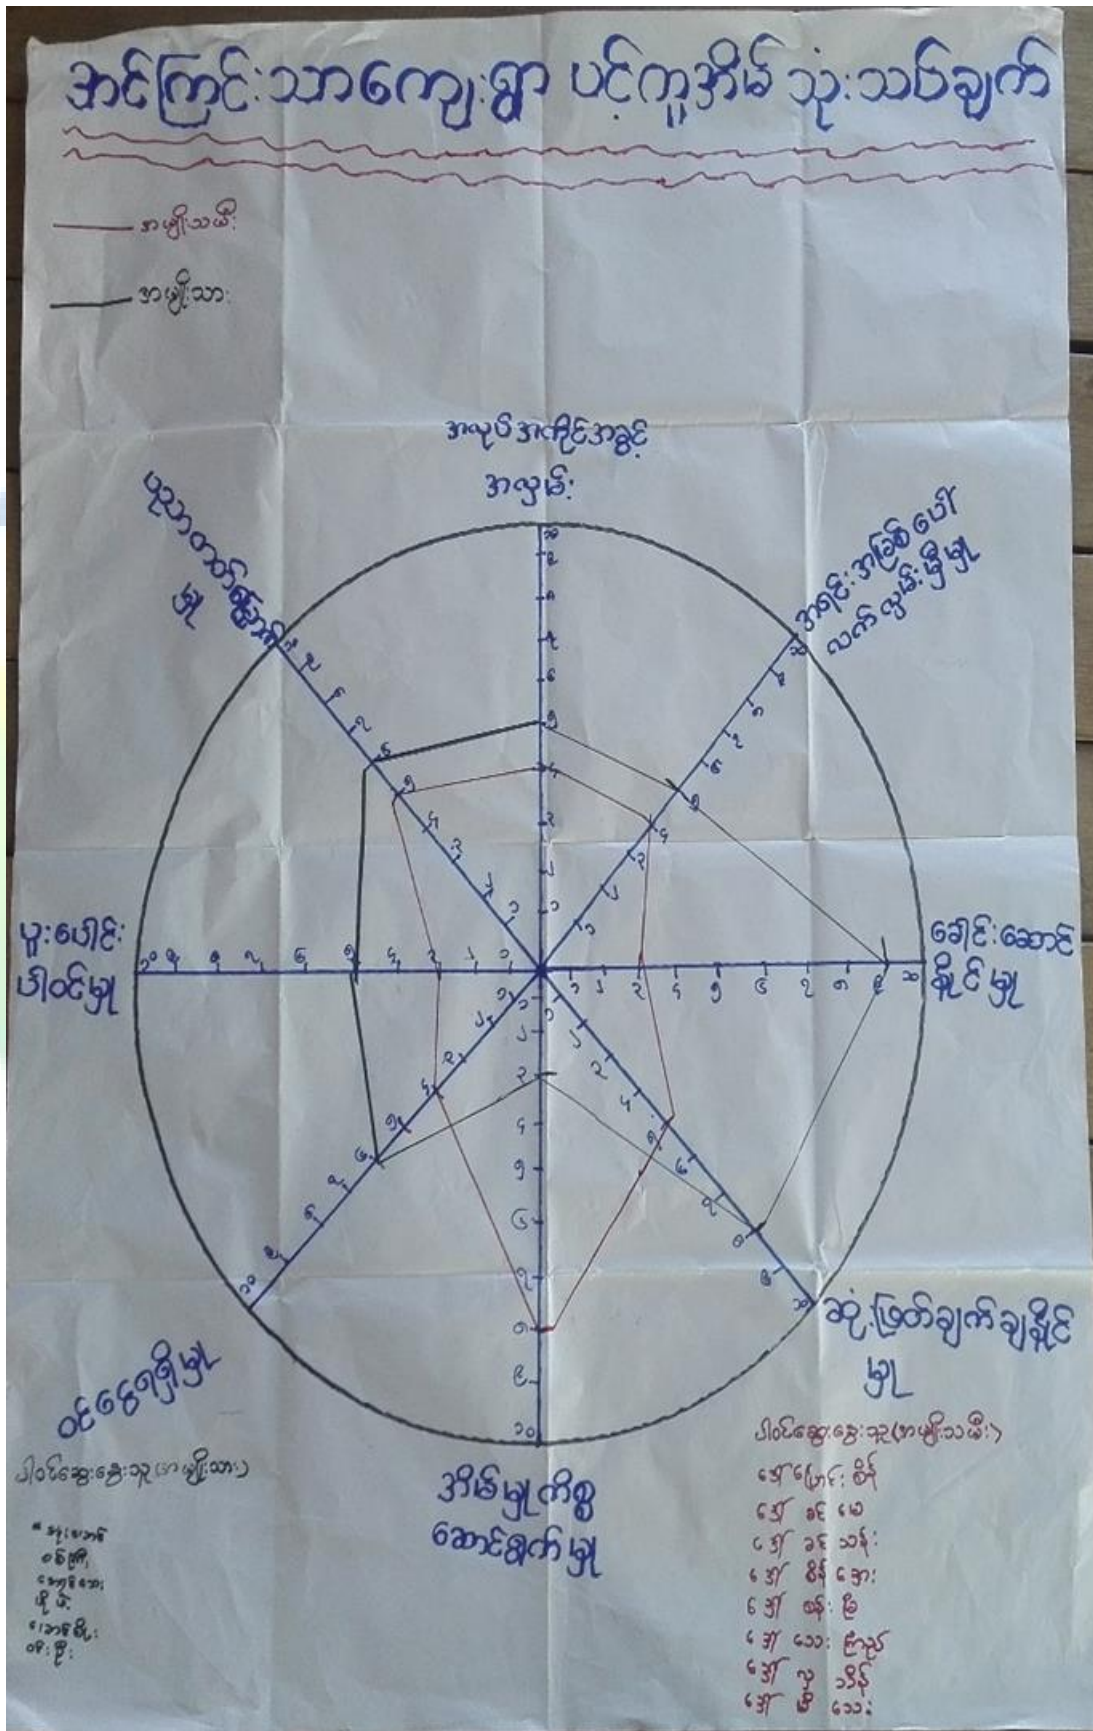 အင်ကြင်းသာကျေးရွာ ပင့်ကူအိမ် သုံးသပ်ချက်
အမျိုးသမီး
အမျိုးသား
အလုပ်အကိုင်အခွင့်
အလှမ်း
အရင်းအမြစ်ပေါ်
လက်လှမ်းမှီမှု
ခေါင်းဆောင်
နိုင်မှု
ဆုံးဖြတ်ချက်ချနိုင်
မှု
အိမ်မှုကိစ္စ
ဆောင်ရွက်မှု
ဝင်ငွေရရှိမှု
ပူးပေါင်း
ပါဝင်မှု
ပညာတတ်မြောက်
မှု
၁ ၂ ၃ ၄ ၅ ၆ ၇ ၈ ၉ ၁၀
ပါဝင်ဆွေးနွေးသူ(အမျိုးသား)
ပါဝင်ဆွေးနွေးသူ(အမျိုးသမီး)
ဒေါ်မြိုင်းစိန်
ဒေါ် ခင် မေ
ဒေါ် ခင် သန်း
ဒေါ် စိန် အေး
ဒေါ် စန်း မြ
ဒေါ် သေး ကြည်
ဒေါ် လှ သိန်
ဒေါ် မိ သေး